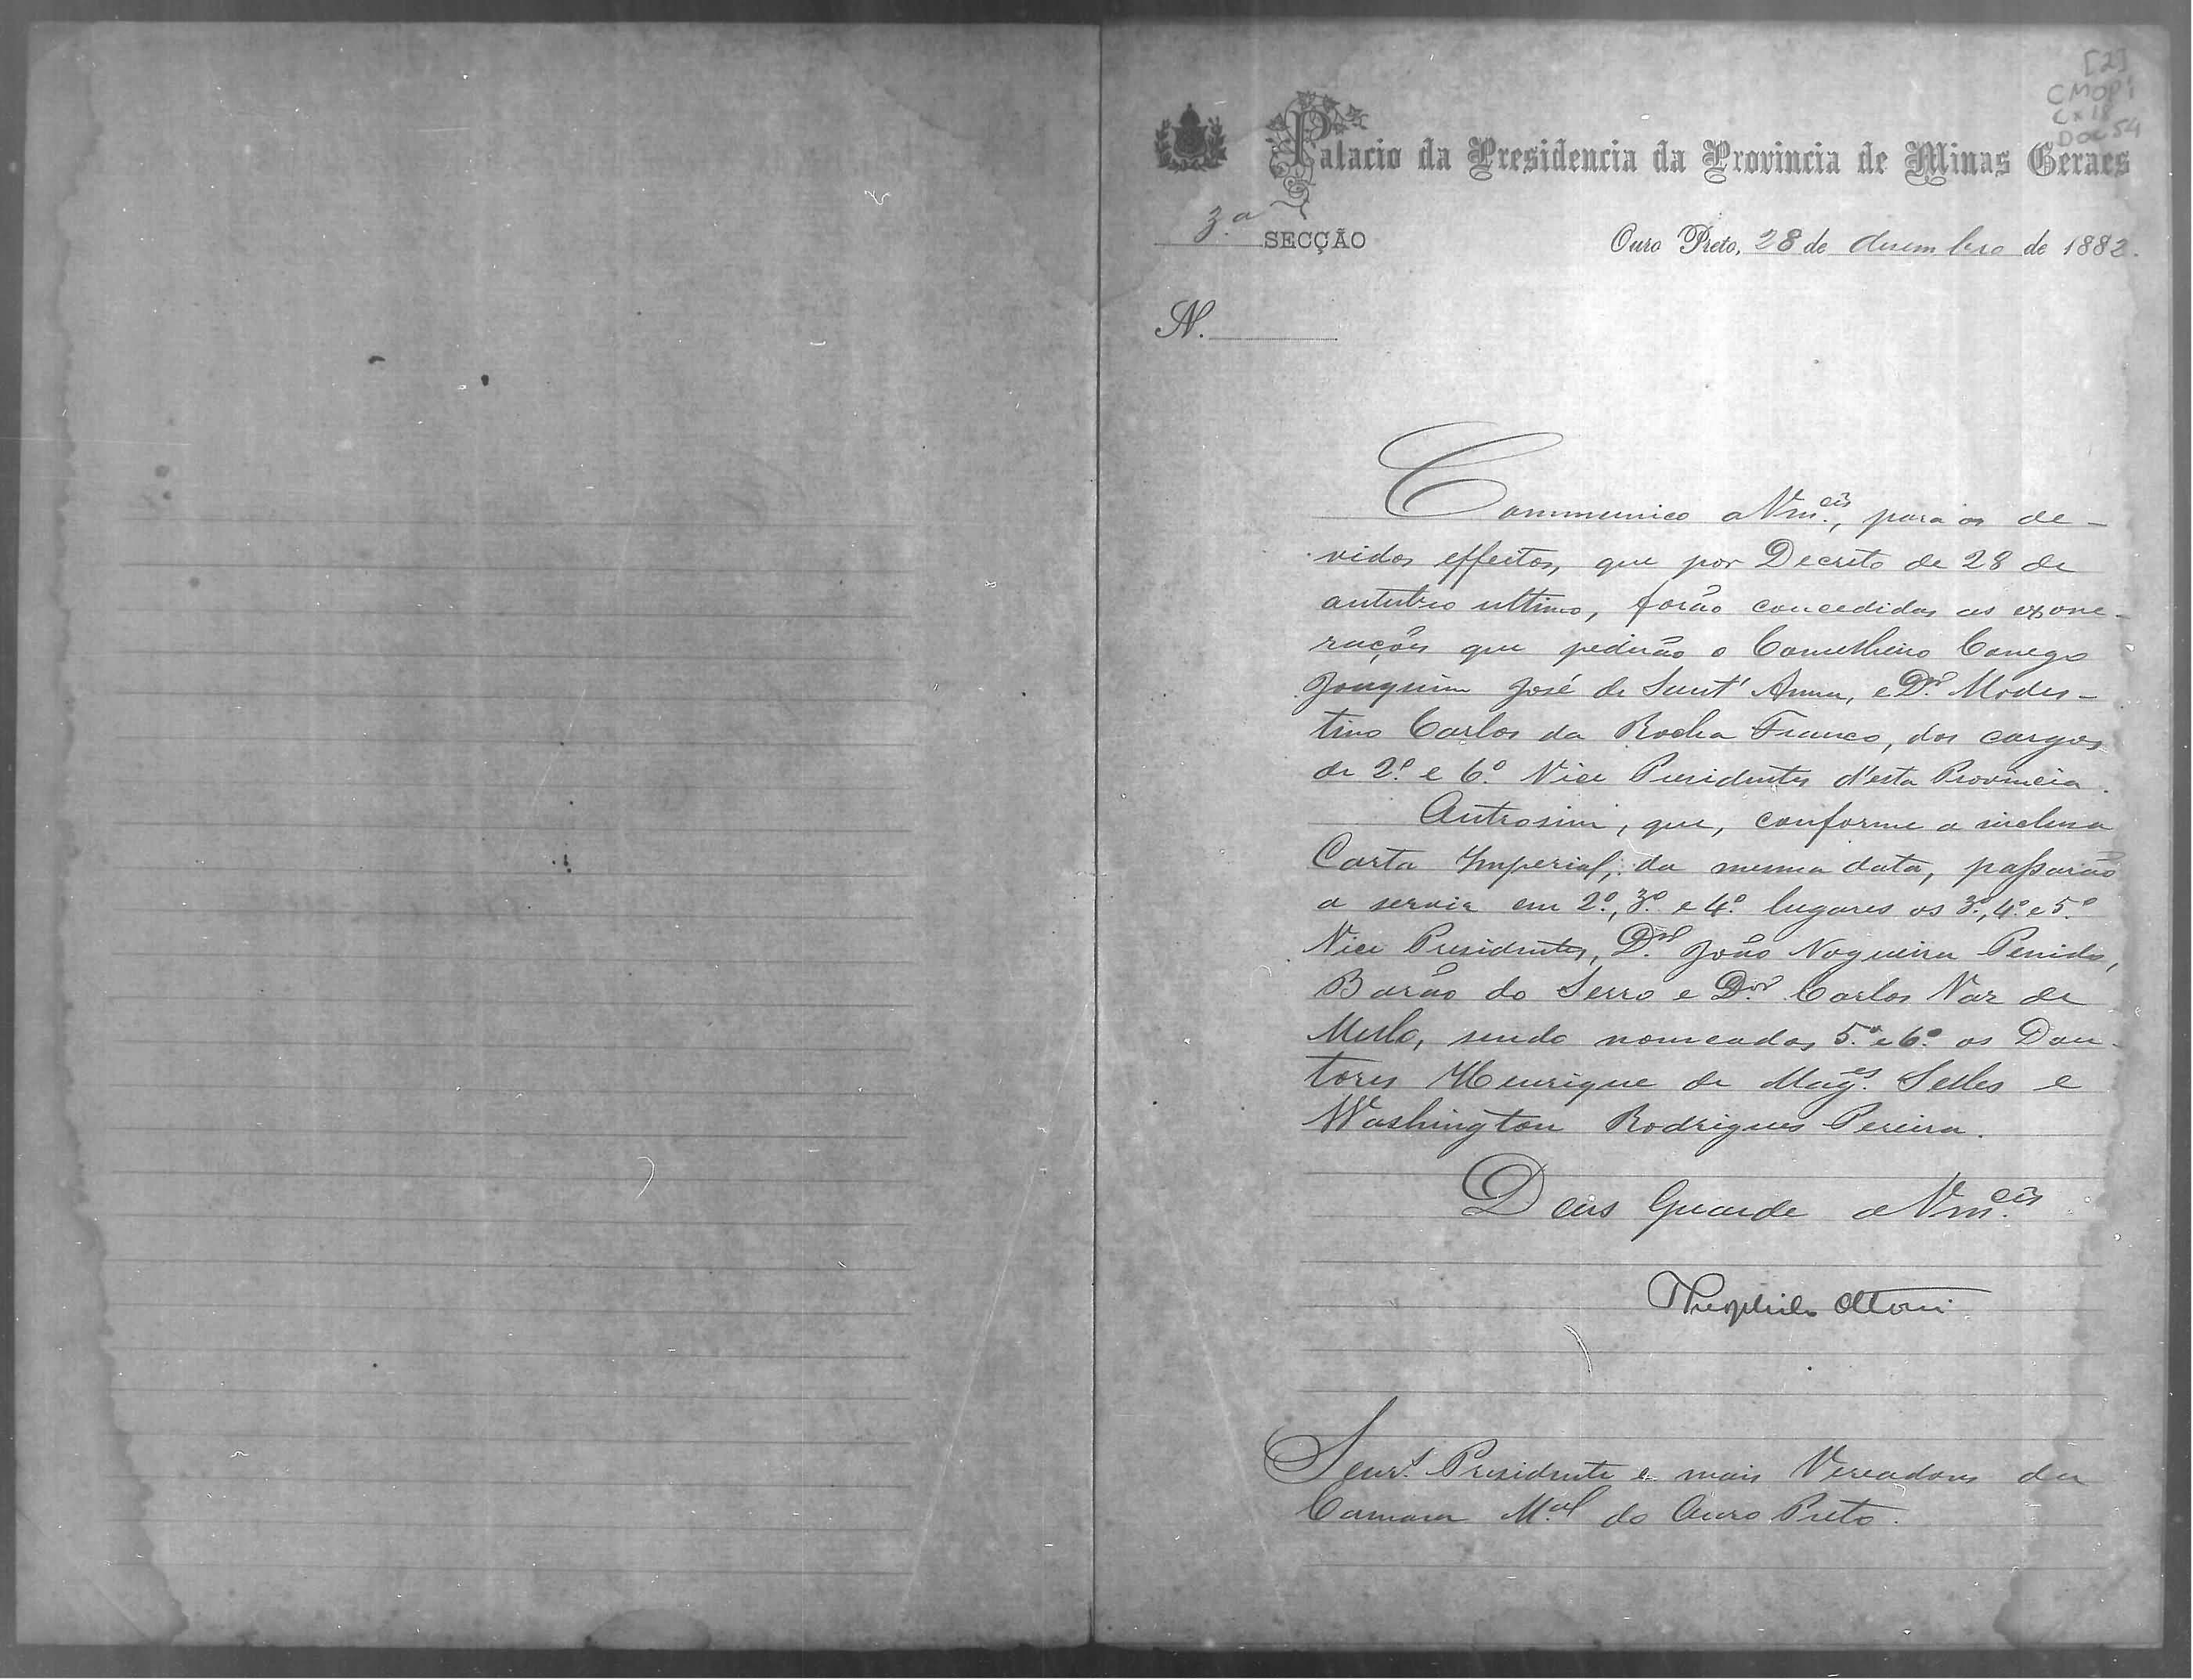 [2]
CMOPi
Cx 18
DOC 54
Palacio da Presidencia da Provincia de Minas Geraes
3.a SECÇÃO
Ouro Preto, 28 de desembro de 1882.
N.
Communico a Vm.ces, para os de-
vidos effeitos, que por Decreto de 28 de
outubro ultimo, forão concedidas as exone-
rações que pedirão o Conselheiro Conego
Joaquim José de Sant'Anna, e D.or Modes-
tino Carlos da Rocha Franco, dos cargos
de 2.º e 6.º Vice Presidentes d'esta Provincia.
Outrosim, que, conforme a inclusa
Carta Imperial, da mesma data, passarão
a servir em 2.º, 3.º e 4.º lugares os 3.º, 4.º e 5.º
Vice Presidentes, D.or João Nogueira Penido,
Barão do Serro e D.or Carlos Vaz de
Mello, sendo nomeados 5.º e 6.º os Dou-
tores Henrique de Mag.es Salles e
Washington Rodrigues Pereira.
Deus Guarde a Vm.ces
Theophilo Ottoni
Senr.s Presidente e mais Vereadores da
Camara M.al do Ouro Preto.